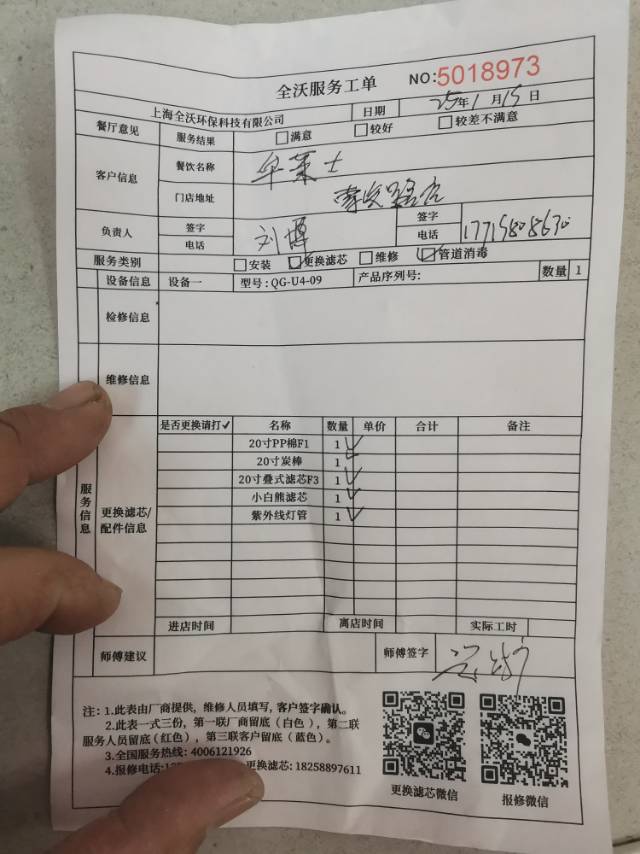 全沃服务工单 NO:5018973
上海全沃环保科技有限公司 日期 25年1月15日
餐厅意见 服务结果 □满意 □较好 □较差不满意
客户信息 餐饮名称 华莱士
门店地址
负责人 签字 刘博 签字
电话 电话
服务类别 □安装 ☑更换滤芯 □维修 ☑管道消毒
设备信息 设备一 型号:QG-U4-09 产品序列号: 数量 1
检修信息
维修信息
服务信息
更换滤芯/配件信息
是否更换请打✓ 名称 数量 单价 合计 备注
20寸PP棉F1 1 ✓
20寸炭棒 1 ✓
20寸叠式滤芯F3 1 ✓
小白熊滤芯 1 ✓
紫外线灯管 1 ✓
进店时间 离店时间 实际工时
师傅建议 师傅签字
注: 1.此表由厂商提供，维修人员填写，客户签字确认。
2.此表一式三份，第一联厂商留底（白色），第二联
服务人员留底（红色），第三联客户留底（蓝色）。
3.全国服务热线: 4006121926
4.报修电话: 更换滤芯: 18258897611
更换滤芯微信 报修微信